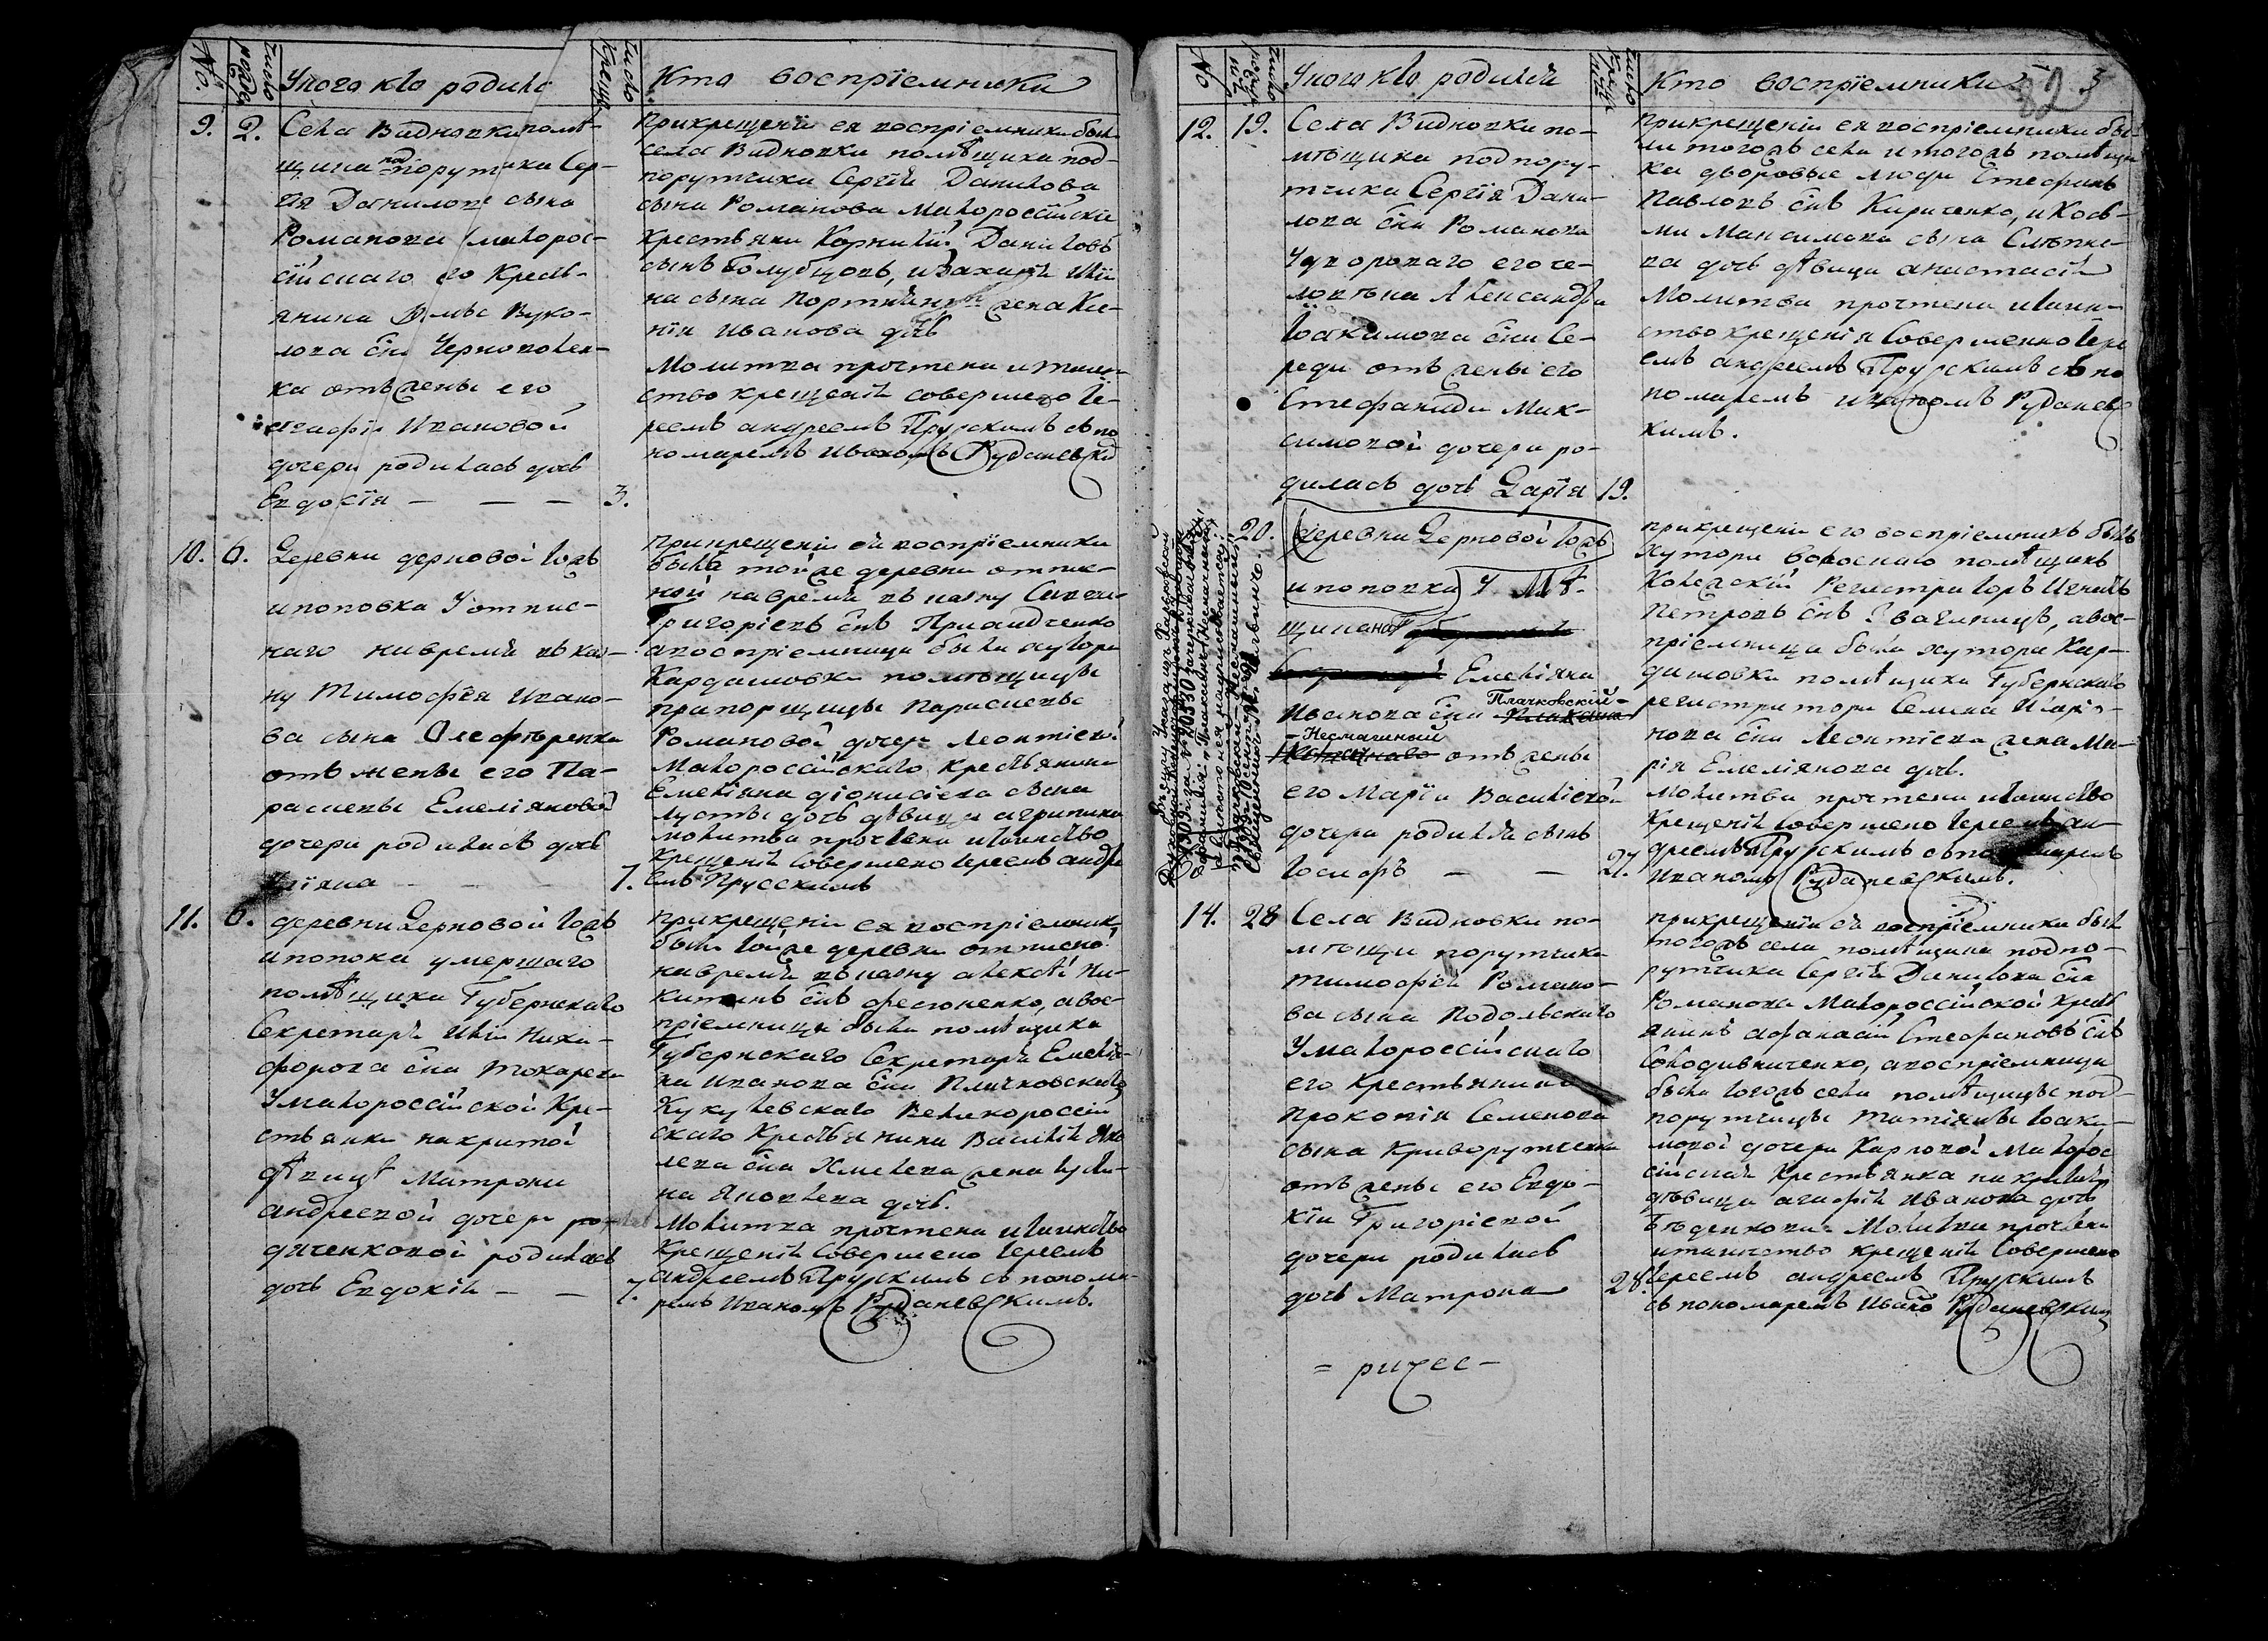 No.
число рожде
У кого кто родилс
число креще
Кто воспрїемники
9. 2.
Села Видновки помѣ-
щика подпорутчика Сер-
гія Данилова сына
Романова малорос-
сїйскаго его кресть-
янина Вуко-
лова сна Черноволен-
ка отъ жены его
агафіи Ивановой
дочери родилась дочь
Евдосїя — — — 3.
при крещенїи ея воспріемники были
села Видновки помѣщика под-
порутчика Сергія Данилова
сына Романова малоросійскіе
крестьяни Корнилій Даниловъ
сынъ Голубцовъ, и Захарія
на сына жена Ксе-
нїя Иванова дочь
Молитва прочтена и таин-
ство крещенія совершено Іе-
реемъ андреемъ Прускимъ съ по
номаремъ Иваномъ Руданевски
10. 6.
Деревни дерновой тожъ
и поповка У отпис-
наго на время въ каз-
ну Тимофѣя Ивано-
ва сына Олефтеренка
отъ жены его Па-
раскевы Емеліяновой
дочери родилась дочь
7.
при крещеніи ей воспрїемники
были той же деревни отпис-
ной на время въ казну
Григоріевъ снъ
а воспріемница была хутора
Кардашовки помѣщицы
прапорщицы Параскевы
Романовой дочери Леонтіевой
малороссійскаго крестьянина
Емеліяна діонисіева сына
дочь дѣвица агрипина
молитва прочтена и таинство
крещенія совершено Іереемъ андре
емъ Прусскимъ
11. 6.
деревни Дерновой тожъ
и попока умершаго
помѣщика Губернскаго
Секретаря Ники-
форова сна Токарева
У малороссійской Кре-
стьянки накритой
дѣвицѣ Матроны
андреевой дочери ро-
диченковой родилась
дочь Евдокія — — 7.
при крещеніи ея воспріемник
были той же деревни отписной
на время въ казну алексѣй Ни-
китинъ снъ Фесюненко, а вос-
пріемница была помѣщика
Губернскаго Секретаря Емелія-
на Иванова сна Плачковскаго
Жукулевскаго Великороссій
скаго Крестьянина Василія Яко
влева сна Хмелева жена
на Яковлева дочь.
Молитва прочтена и таинство
Крещенія Совершено Іереемъ
андреемъ Прускимъ съ понома-
ремъ Иваномъ Руданевскимъ.
No
число рожде нія
У кого кто родилъ
число
Кто воспрїемники
3
12. 19.
Села Видновки по-
мѣщика подпору-
тчика Сергїя Дани-
лова сна Романова
У дворового его че-
ловѣка Александра
Іоакимова сна Се-
реди отъ жены его
Стефаниды Мак-
симовой дочери ро-
дилась дочь Дарїя 19.
при крещеніи ея воспріемники бы-
ли тогожъ села и тогожъ помѣщи
ка дворовые люди Стефанъ
Павловъ снъ Кириченко, и Кось-
ми Максимова сына Слѣпне-
ва дочь дѣвица анастасія
Молитва прочтена и таин-
ство крещенія Совершенно Іере
емъ андреемъ Прускимъ съ по
номаремъ иваномъ Руданев
кимъ.
20.
деревни Дерновой тожъ
и поповка У Мѣ-
щина
Емеліяна
Плачковскій-
Иванова сна
-Несмашный
отъ жены
его Марїи Василіевой
дочери родился сынъ
Іосифъ — — 27.
при крещеніи его воспріемникъ былъ
хутора помѣщикъ
Колежскій Регистраторъ Игнатъ
Петровъ снъ Звагинцъ, а вос-
пріемница была хутора Кар-
дашовки помѣщика Губернскаго
регистратора Семена Иларіо-
нова сна Леонтіева жена Ма-
рія Емеліянова дочь.
молитва прочтена и таинство
крещенія Совершено Іереемъ ан-
дреемъ Прускимъ съ пономаремъ
Иваномъ Руданевскимъ.
14. 28
Села Видновки по-
мѣщи порутчика
Тимофѣя Романо-
ва сына Подольскаго
У малороссійскаго
его Крестьянина
Прокопія Семенова
сына Криворутченка
отъ жены его Евдо-
кіи Григоріевой
дочери родилась
дочь Матрона 28.
при крещенїи ей воспрїемники были
тогожъ села помѣщика подпо-
рутчика Сергія Данилова сна
Романова Малороссійской крест
янинъ афанасій Стефановъ снъ
Солодивниченко, а воспріемница
была тогожъ села помѣщицы под-
порутчицы Татіяны Іоаки-
мовой дочери Карповой Малорос
сійская Крестьянка накрытая
дѣвица агафія Иванова дочь
Бѣденкова. Молитва прочтена
и таинство крещенія Совершено
Іереемъ андреемъ Прускимъ
съ пономаремъ Ивано Руданевским